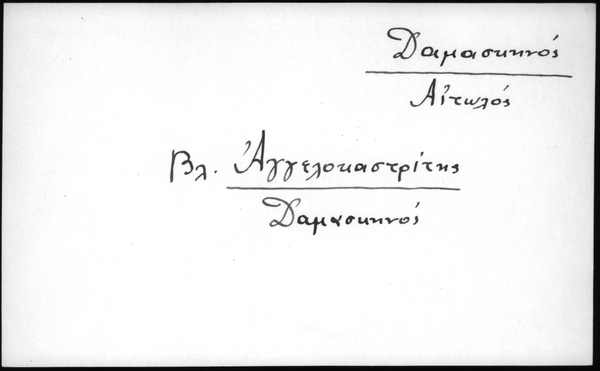 Δαμασκηνός
Αἰτωλός
Βλ. Ἀγγελοκαστρίτης
Δαμασκηνός